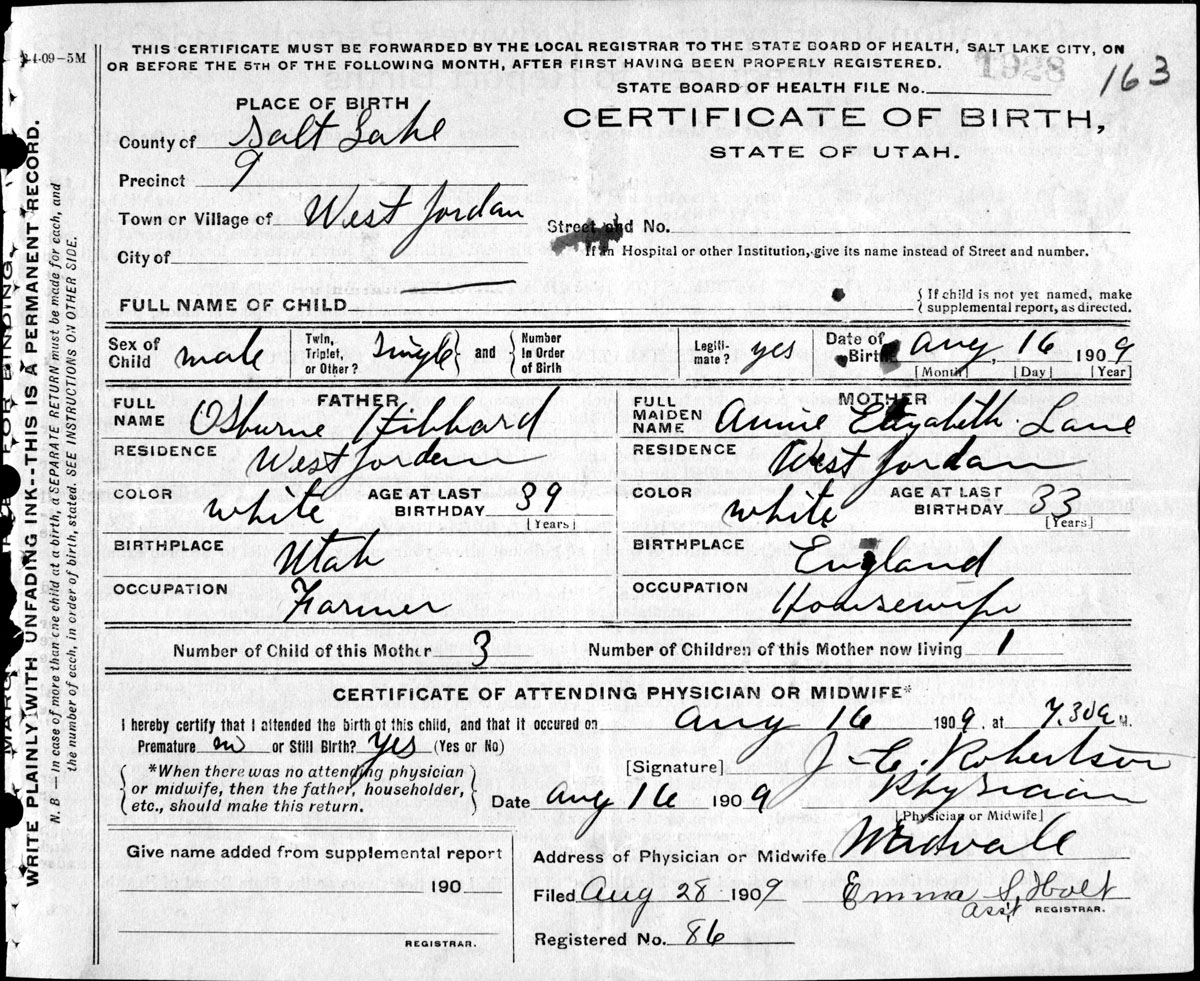 24-09-5M
THIS CERTIFICATE MUST BE FORWARDED BY THE LOCAL REGISTRAR TO THE STATE BOARD OF HEALTH, SALT LAKE CITY, ON
OR BEFORE THE 5TH OF THE FOLLOWING MONTH, AFTER FIRST HAVING BEEN PROPERLY REGISTERED.
1928
163
STATE BOARD OF HEALTH FILE No.
PLACE OF BIRTH
CERTIFICATE OF BIRTH,
STATE OF UTAH.
County of Salt Lake
Precinct 9
Town or Village of West Jordan
Street and No.
If in Hospital or other Institution, give its name instead of Street and number.
City of
FULL NAME OF CHILD
{ If child is not yet named, make
supplemental report, as directed.
Sex of Child male Twin, Triplet, or Other? Single } and { Number in Order of Birth Legiti-mate? yes Date of Birth Aug 16 1909
[Month] [Day] [Year]
FATHER MOTHER
FULL NAME Osburne Hibbard FULL MAIDEN NAME Annie Elizabeth Lane
RESIDENCE West Jordan RESIDENCE West Jordan
COLOR white AGE AT LAST BIRTHDAY 39 [Years] COLOR white AGE AT LAST BIRTHDAY 33 [Years]
BIRTHPLACE Utah BIRTHPLACE England
OCCUPATION Farmer OCCUPATION Housewife
Number of Child of this Mother 3 Number of Children of this Mother now living 1
CERTIFICATE OF ATTENDING PHYSICIAN OR MIDWIFE*
I hereby certify that I attended the birth of this child, and that it occured on Aug 16 1909, at 7.30 a M.
Premature or Still Birth? yes (Yes or No)
{ *When there was no attending physician
or midwife, then the father, householder,
etc., should make this return. }
[Signature] J. E. Robertson
Date Aug 16 1909 Physician
[Physician or Midwife]
Give name added from supplemental report
190
REGISTRAR.
Address of Physician or Midwife Midvale
Filed Aug 28 1909 Emma S. Holt
Ass't REGISTRAR.
Registered No. 86
MARGIN FOR BINDING.
WRITE PLAINLY WITH UNFADING INK--THIS IS A PERMANENT RECORD.
N. B.—In case of more than one child at a birth, a SEPARATE RETURN must be made for each, and
the number of each, in order of birth, stated. SEE INSTRUCTIONS ON OTHER SIDE.